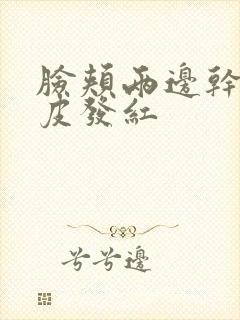 臉頰兩邊幹
皮發紅
兮兮邊